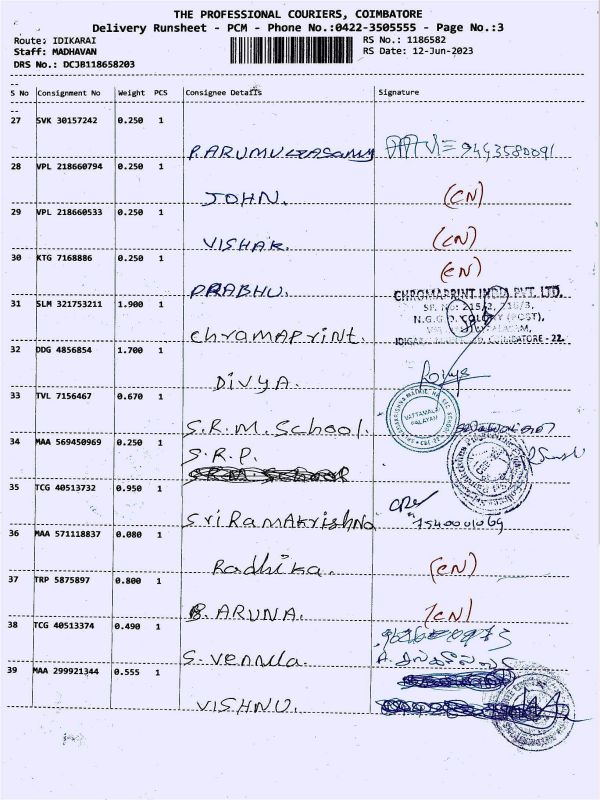 THE PROFESSIONAL COURIERS, COIMBATORE
Delivery Runsheet - PCM - Phone No.:0422-3505555 - Page No.:3
Route: IDIKARAI
RS No.: 1186582
Staff: MADHAVAN
RS Date: 12-Jun-2023
DRS No.: DCJB118658203
S No Consignment No Weight PCS Consignee Details Signature
27 SVK 30157242 0.250 1
9443580091
28 VPL 218660794 0.250 1
JOHN. (CN)
29 VPL 218660533 0.250 1
VISHAK. (CN)
30 KTG 7168886 0.250 1
(CN)
PRABHU.
CHROMAPRINT INDIA PVT. LTD.
31 SLM 321753211 1.900 1
chromaprint.
COIMBATORE - 22.
32 DDG 4856854 1.700 1
DIVYA.
33 TVL 7156467 0.670 1
VATTAMALAI PALAYAM
S.R.M. School.
34 MAA 569450969 0.250 1
S.R.P.
35 TCG 40513732 0.950 1
Sri Ramakrishna
36 MAA 571118837 0.080 1
Radhika. (CN)
37 TRP 5875897 0.800 1
B. ARUNA. (CN)
38 TCG 40513374 0.490 1
39 MAA 299921344 0.555 1
VISHNU.